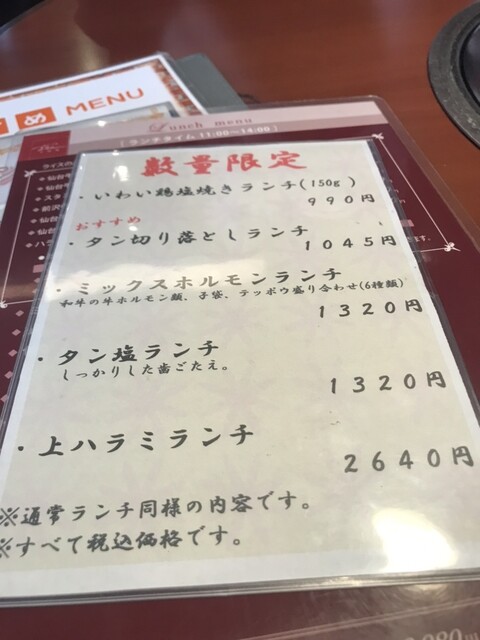 め MENU
Lunch menu
[ランチタイム 11:00～14:00]
数量限定
・いわい鶏塩焼きランチ(150g)
990円
おすすめ
・タン切り落としランチ
1045円
・ミックスホルモンランチ
和牛の牛ホルモン類、子袋、テッポウ盛り合わせ(6種類)
1320円
・タン塩ランチ
しっかりした歯ごたえ。
1320円
・上ハラミランチ
2640円
※通常ランチ同様の内容です。
※すべて税込価格です。